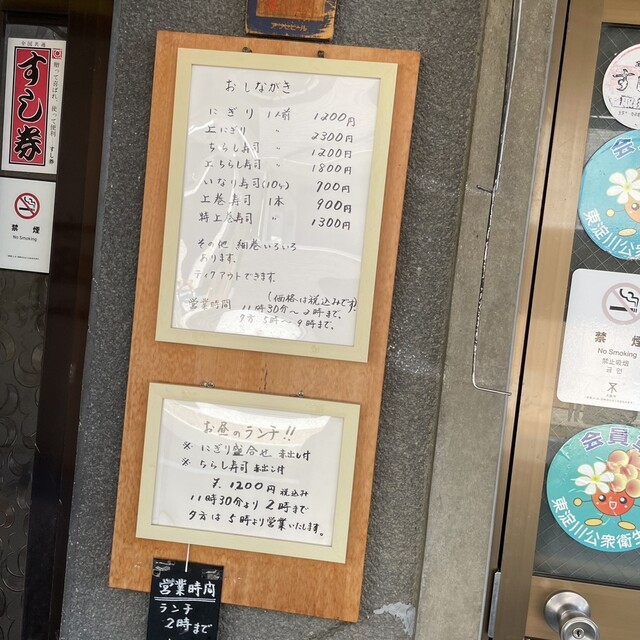 アサヒビール
全国共通
すし券
贈ってよろこばれ、使って便利 すし券
禁煙
No Smoking
おしながき
にぎり 1人前 1200円
上にぎり 〃 2300円
ちらし寿司 〃 1200円
上ちらし寿司 〃 1800円
いなり寿司(10ヶ) 700円
上巻寿司 1本 900円
特上巻寿司 〃 1300円
その他 細巻いろいろ
あります。
テイクアウトできます。
(価格は税込みです)
営業時間 11時30分〜2時まで。
夕方 5時〜9時まで。
お昼のランチ!!
※ にぎり盛合せ 赤出し付
※ ちらし寿司 赤出し付
¥. 1200円 税込み
11時30分より 2時まで
夕方は 5時より営業いたします。
営業時間
ランチ
2時まで
会員
東淀川公衆衛生
禁煙
No Smoking
禁止吸烟
금연
会員
東淀川公衆衛生